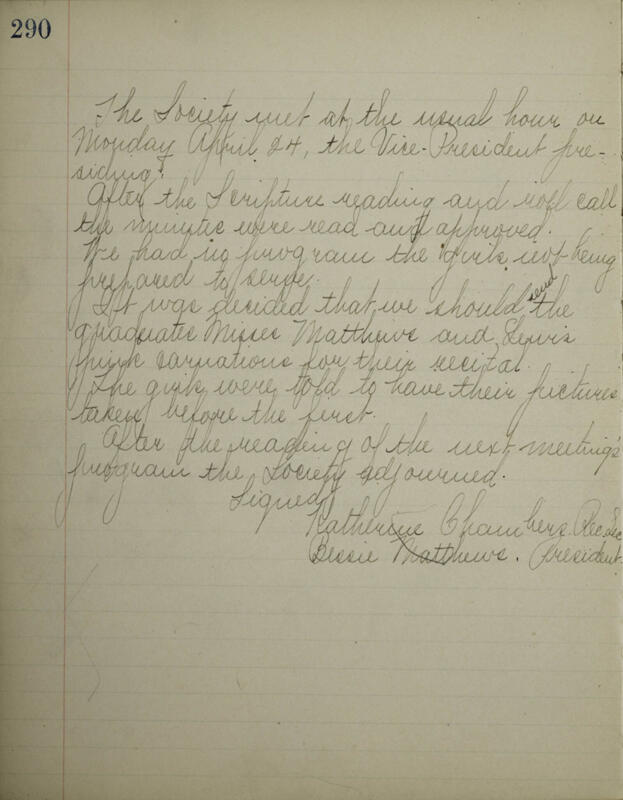 290
The Society met at the usual hour on
Monday April 24, the Vice-President pre-
siding.
After the Scripture reading and roll call
the minutes were read and approved.
We had no program the girls not being
prepared to serve.
It was decided that we should send the
graduates Misses Matthews and Lewis
pink carnations for their recital.
The girls were told to have their pictures
taken before the first.
After the reading of the next meeting's
program the Society adjourned.
Signed
Katherine Chambers Rec. Sec
Bessie Matthews. President.